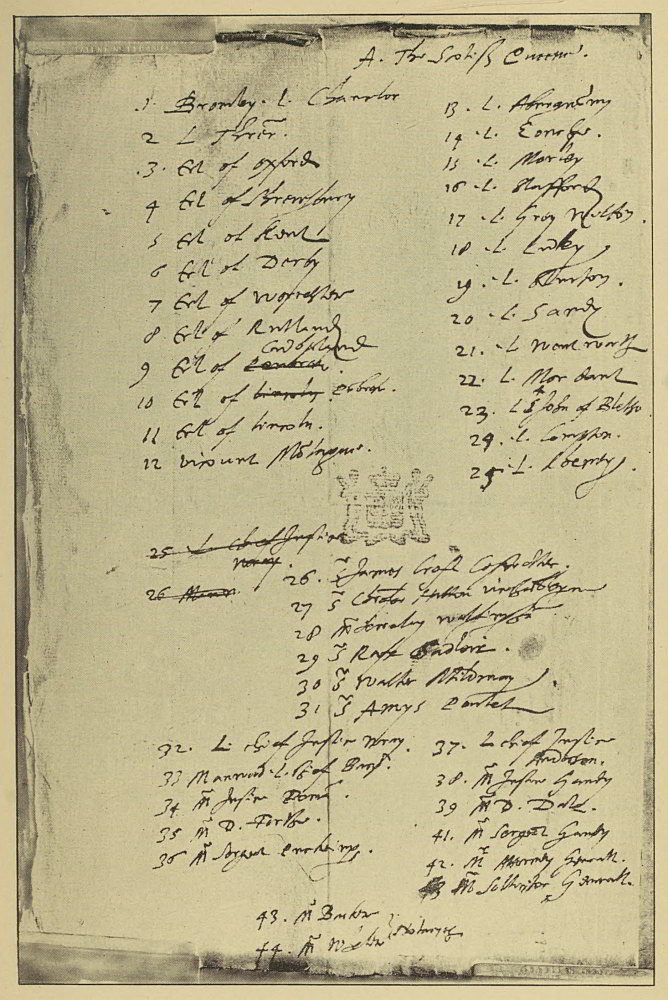 A. The Scotish Queene.
1 Bromley. L. Chancelor
2 L Threr.
3. Erl of oxford
4 Erl of Shrewsbury
5 Erl of Kent
6 Erl of Derby
7 Erl of worcester
8 Erl of Rutland
9 Erl of Cumberland
10 Erl of lincoln Penbrok.
11 Erl of lincoln.
12 vicount Montague.
13. L. Abergaveny
14 L. Zouche.
15 L. Morley
16 L. Stafford
17 L. Grey Wilton.
18 L. Lumley
19. L. Sturton.
20 L. Sandy
21. L wentworth
22. L. Mordaunt
23. L St John of Bletso
24. L. Compton.
25 L. Cheyny.
25 L chef Justice
wray.
26 Manw.
26. Sr James Croft
27 Sr Christofer Hatton
28 Mr Secretary walsingham
29 Sr Raff Sadleir.
30 Sr Walter Mildmay
31 Sr Amys Poulet
32. L. chief Justice wray.
33 Manwood L. chef Baron.
34 Mr Justice
35 Mr D. Forth.
36 Mr Sergeant Puckering.
37. L chief Justice
Anderson.
38. Mr Justice Gawdy
39 Mr D. Dale.
41. Mr Sergeant Gawdy
42. Mr Atturney Generall.
43 Mr Sollicitor Generall.
43. Mr Barker
44. Mr Wheler Notaryes